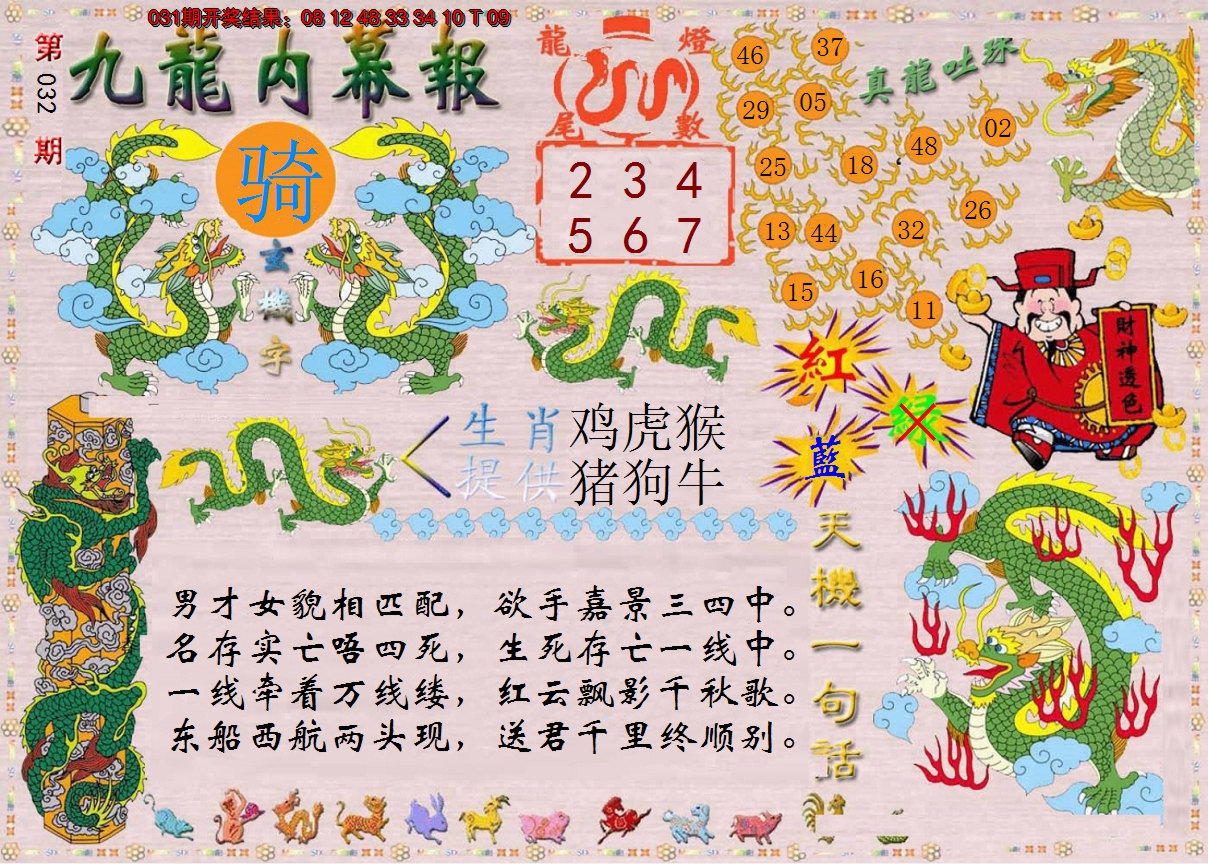 031期开奖结果：08 12 48 33 34 10 T 09
第032期
九龍内幕報
骑
玄機字
龍燈尾數
2 3 4
5 6 7
真龍吐珠
46 37
29 05
25 18 48 02
13 44 32 26
15 16 11
財神透色
紅
绿
藍
生肖 鸡虎猴
提供 猪狗牛
男才女貌相匹配，欲手嘉景三四中。
名存实亡唔四死，生死存亡一线中。
一线牵着万线缕，红云飘影千秋歌。
东船西航两头现，送君千里终顺别。
天機一句話